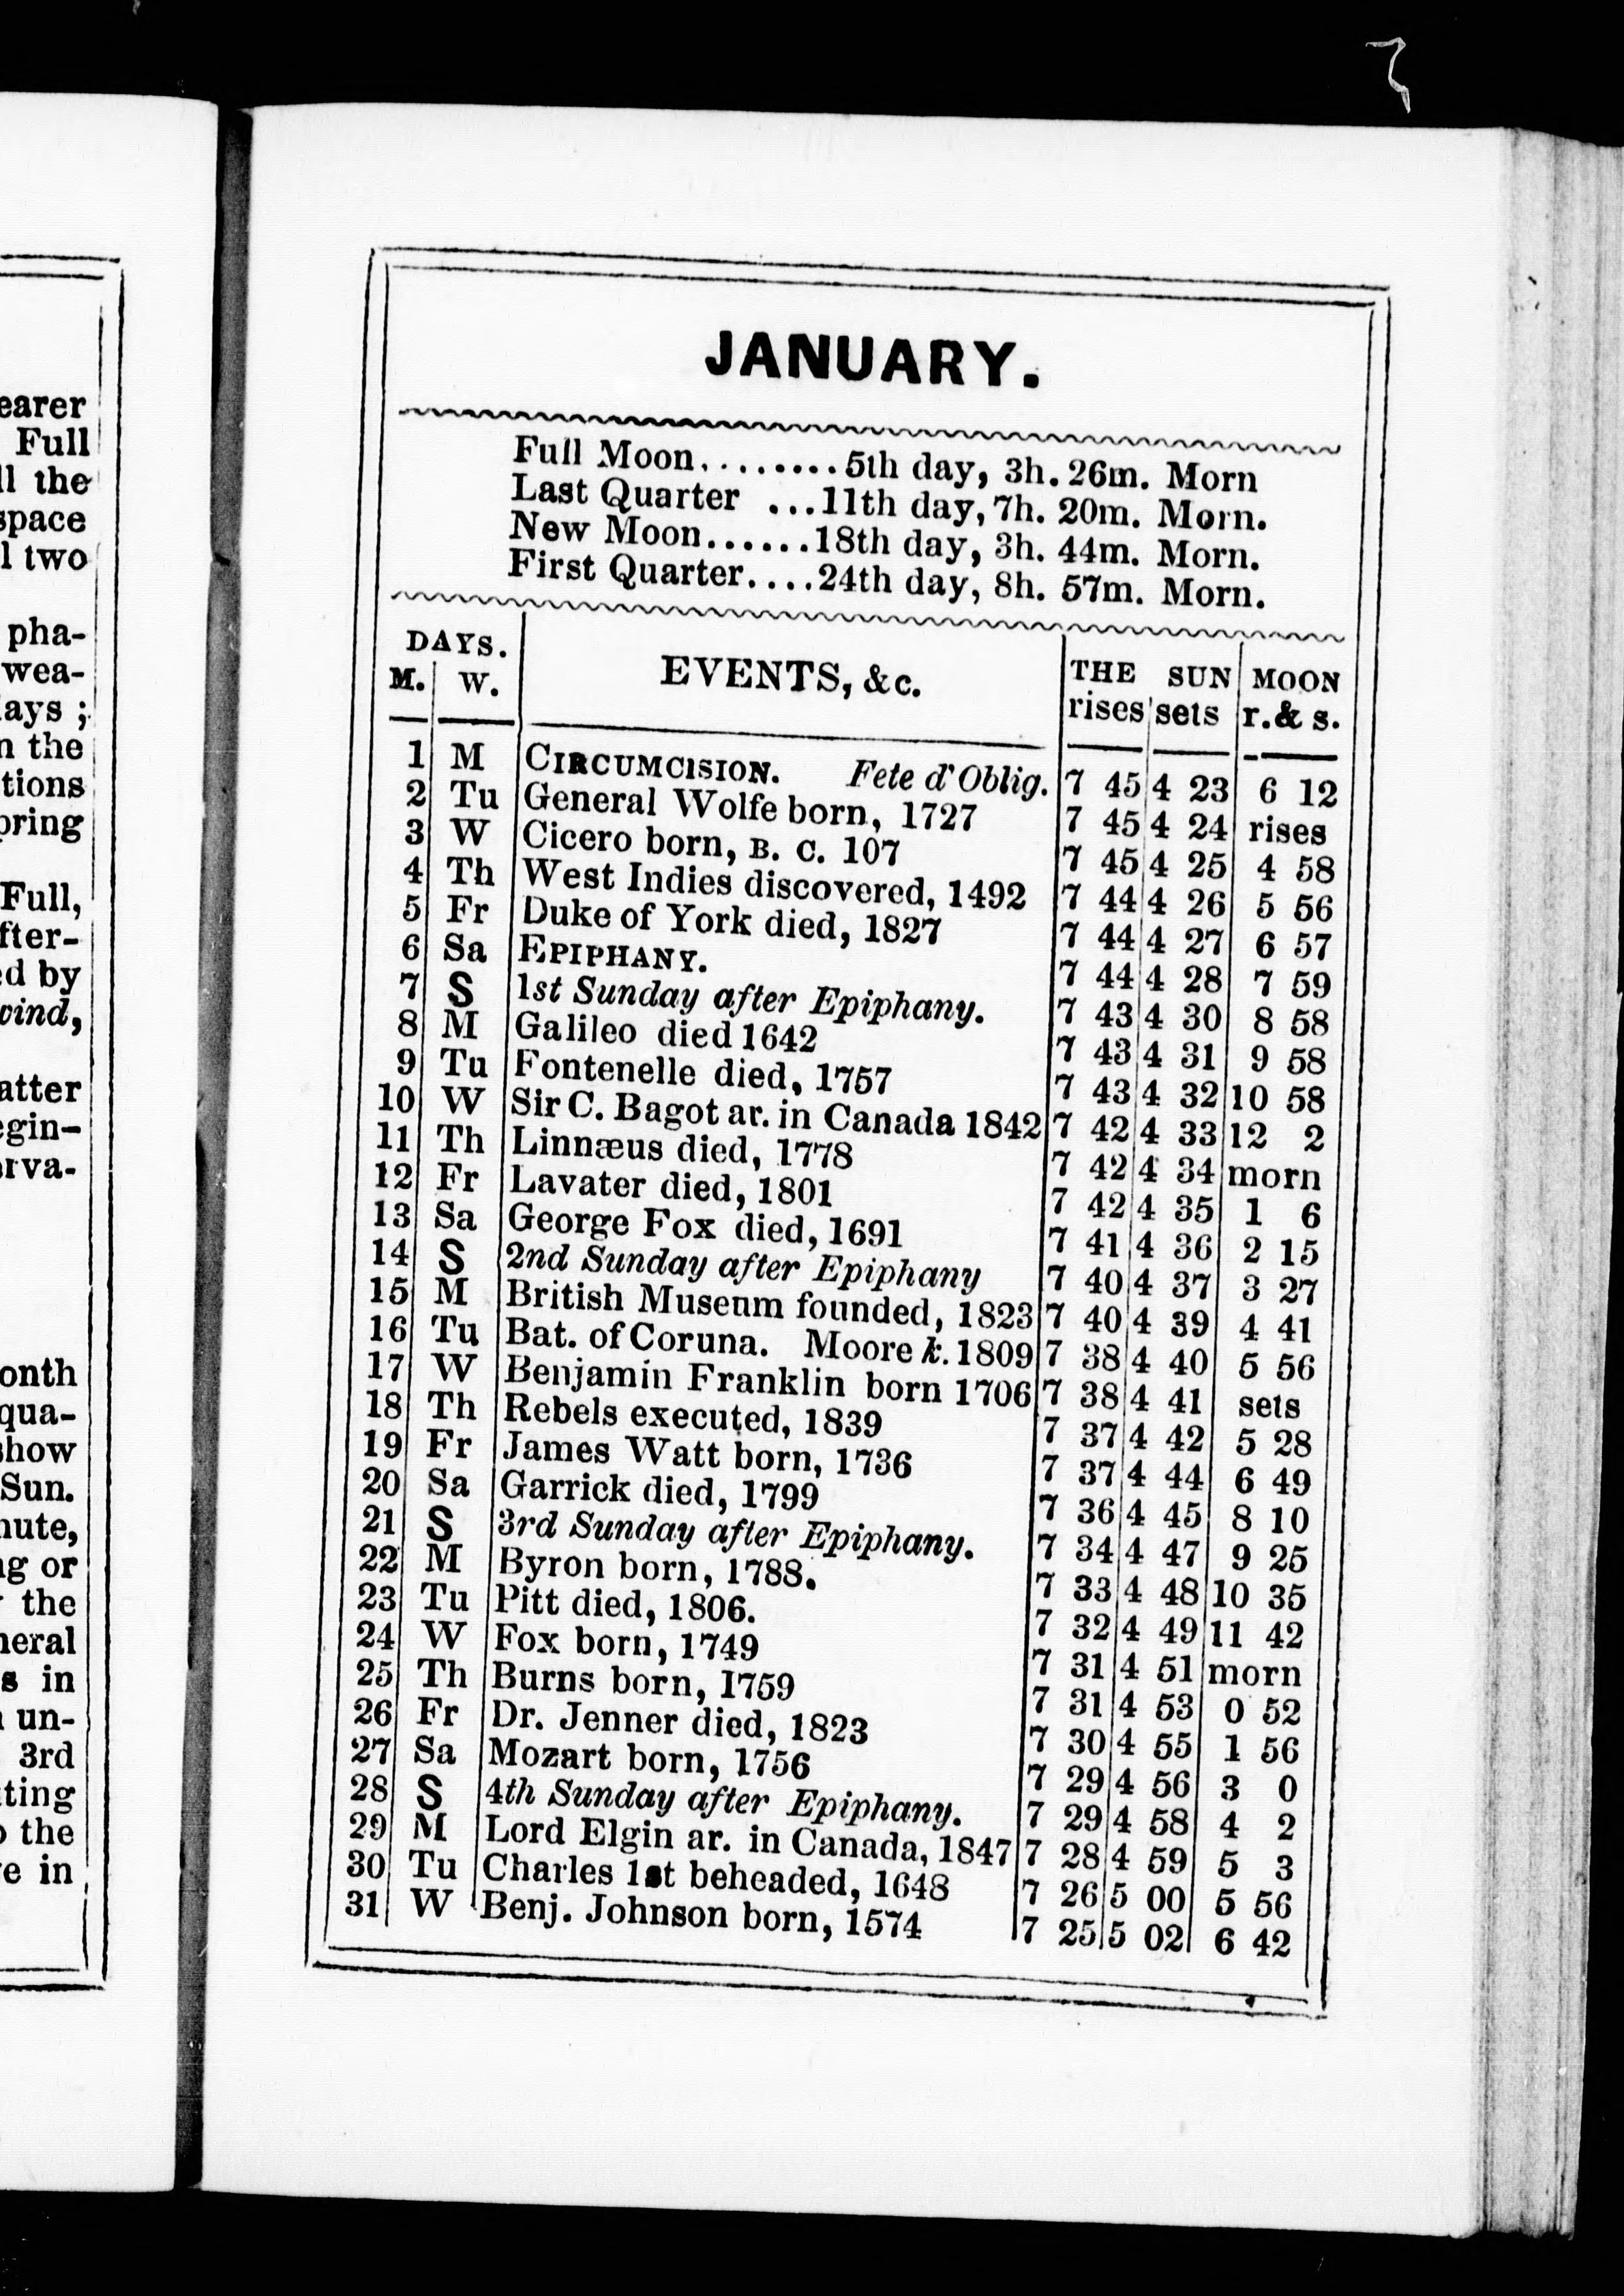 earer
Full
ll the
space
l two
pha-
wea-
lays ;
n the
tions
pring
Full,
fter-
ed by
wind,
atter
egin-
erva-
onth
qua-
show
Sun.
nute,
ng or
the
neral
s in
un-
3rd
tting
o the
e in
JANUARY.
Full Moon.........5th day, 3h. 26m. Morn
Last Quarter ...11th day, 7h. 20m. Morn.
New Moon......18th day, 3h. 44m. Morn.
First Quarter....24th day, 8h. 57m. Morn.
DAYS. EVENTS, &c. THE SUN MOON
M. W. rises sets r.& s.
1 M CIRCUMCISION. Fete d'Oblig. 7 45 4 23 6 12
2 Tu General Wolfe born, 1727 7 45 4 24 rises
3 W Cicero born, B. C. 107 7 45 4 25 4 58
4 Th West Indies discovered, 1492 7 44 4 26 5 56
5 Fr Duke of York died, 1827 7 44 4 27 6 57
6 Sa EPIPHANY. 7 44 4 28 7 59
7 S 1st Sunday after Epiphany. 7 43 4 30 8 58
8 M Galileo died 1642 7 43 4 31 9 58
9 Tu Fontenelle died, 1757 7 43 4 32 10 58
10 W Sir C. Bagot ar. in Canada 1842 7 42 4 33 12 2
11 Th Linnæus died, 1778 7 42 4 34 morn
12 Fr Lavater died, 1801 7 42 4 35 1 6
13 Sa George Fox died, 1691 7 41 4 36 2 15
14 S 2nd Sunday after Epiphany 7 40 4 37 3 27
15 M British Museum founded, 1823 7 40 4 39 4 41
16 Tu Bat. of Coruna. Moore k. 1809 7 38 4 40 5 56
17 W Benjamin Franklin born 1706 7 38 4 41 sets
18 Th Rebels executed, 1839 7 37 4 42 5 28
19 Fr James Watt born, 1736 7 37 4 44 6 49
20 Sa Garrick died, 1799 7 36 4 45 8 10
21 S 3rd Sunday after Epiphany. 7 34 4 47 9 25
22 M Byron born, 1788. 7 33 4 48 10 35
23 Tu Pitt died, 1806. 7 32 4 49 11 42
24 W Fox born, 1749 7 31 4 51 morn
25 Th Burns born, 1759 7 31 4 53 0 52
26 Fr Dr. Jenner died, 1823 7 30 4 55 1 56
27 Sa Mozart born, 1756 7 29 4 56 3 0
28 S 4th Sunday after Epiphany. 7 29 4 58 4 2
29 M Lord Elgin ar. in Canada, 1847 7 28 4 59 5 3
30 Tu Charles 1st beheaded, 1648 7 26 5 00 5 56
31 W Benj. Johnson born, 1574 7 25 5 02 6 42